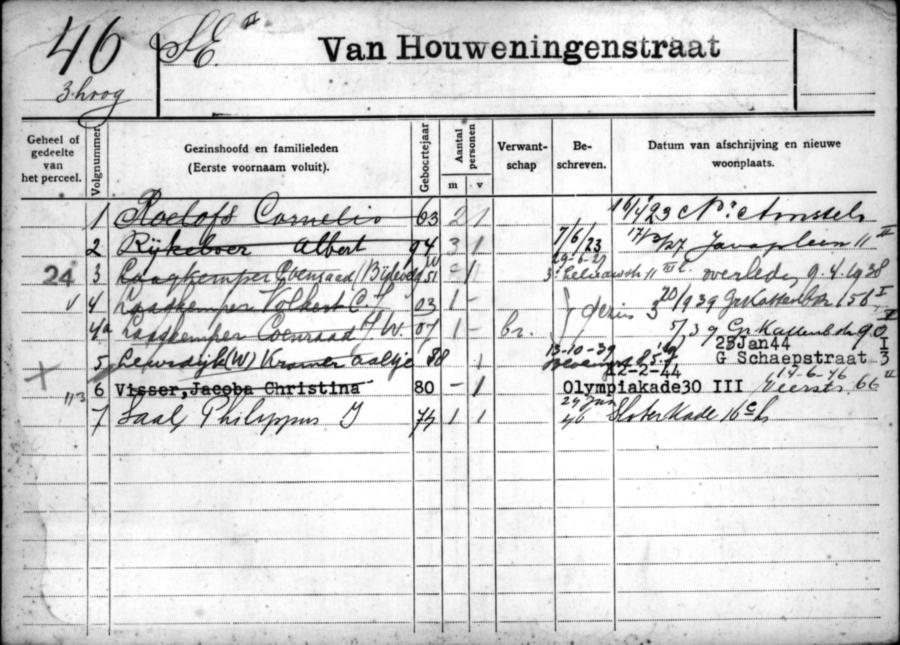 46 SE II Van Houweningenstraat
3 hoog
Geheel of gedeelte van het perceel. Volgnummer Gezinshoofd en familieleden (Eerste voornaam voluit). Geboortejaar Aantal personen m v Verwant-schap Be-schreven. Datum van afschrijving en nieuwe woonplaats.
1 Roelofs Cornelis 63 2 1 16/4 23 Nr. Amstel
2 Rijkeboer Albert 94 3 1 7/6/23 Javaplein 11 II
24 3 Laagkemper Coenraad 51 - 1 29-6-27 overleden 9.4.1938
4 Laagkemper Volkert C. 03 1 - 3 20/1 939 Gr Kattenb 158 I
4a Laagkemper Coenraad H.W. 07 1 - br. 5/ 39 Gr. Kattenb 90
25 Jan 44 I
5 Leursdijk (W) Kramer Aaltje 88 1 13-10-39 G Schaepstraat 3
12-2-44 17-6-46
6 Visser, Jacoba Christina 80 - 1 Olympiakade 30 III Veerstr. 66 II
7 Saal, Philippus J 74 1 1 24 Jun 46 Sloterkade 16 c h